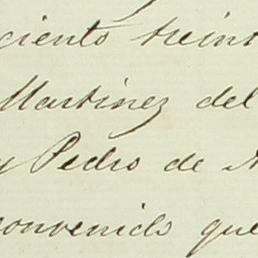 ciento treint
Martinez del
y Pedro de
convenido que